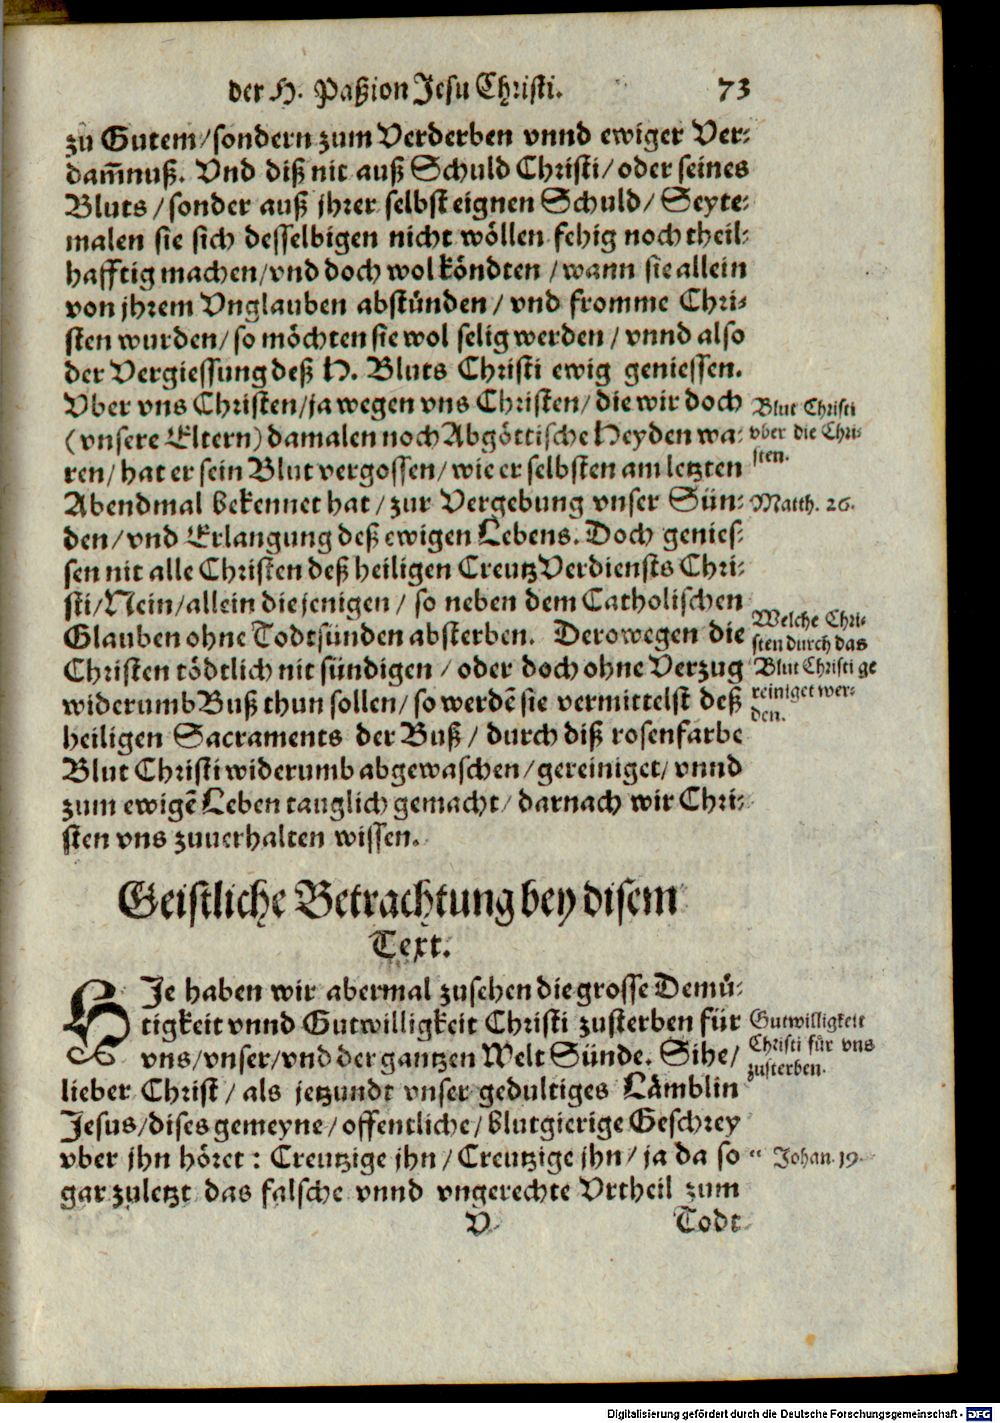 der H. Paßion Jesu Christi. 73
zu Gutem/sondern zum Verderben vnnd ewiger Ver-
dam̃nuß. Vnd diß nit auß Schuld Christi/ oder seines
Bluts /sonder auß jhrer selbst eignen Schuld/ Seyte-
malen sie sich desselbigen nicht wöllen fehig noch theil-
hafftig machen/vnd doch wol köndten /wann sie allein
von jhrem Vnglauben abstünden / vnd fromme Chri-
sten wurden/ so möchten sie wol selig werden / vnnd also
der Vergiessung deß H. Bluts Christi ewig geniessen.
Vber vns Christen/ja wegen vns Christen/ die wir doch
(vnsere Eltern) damalen noch Abgöttische Heyden wa-
ren/ hat er sein Blut vergossen/ wie er selbsten am letzten
Abendmal bekennet hat / zur Vergebung vnser Sün-
den/ vnd Erlangung deß ewigen Lebens. Doch genies-
sen nit alle Christen deß heiligen Creutz Verdiensts Chri-
sti/Nein/allein diejenigen / so neben dem Catholischen
Glauben ohne Todtsünden absterben. Derowegen die
Christen tödtlich nit sündigen / oder doch ohne Verzug
widerumb Buß thun sollen/ so werdẽ sie vermittelst deß
heiligen Sacraments der Buß / durch diß rosenfarbe
Blut Christi widerumb abgewaschen/gereiniget/ vnnd
zum ewigẽ Leben tauglich gemacht/ darnach wir Chri-
sten vns zuuerhalten wissen.
Blut Christi
vber die Chri-
sten.
Matth. 26.
Welche Chri-
sten durch das
Blut Christi ge
reiniget wer-
den.
Geistliche Betrachtung bey disem
Text.
HJe haben wir abermal zusehen die grosse Demü-
tigkeit vnnd Gutwilligkeit Christi zusterben für
vns/vnser/vnd der gantzen Welt Sünde. Sihe/
lieber Christ / als jetzundt vnser gedultiges Lämblin
Jesus/dises gemeyne/ offentliche/ blutgierige Geschrey
vber jhn höret: Creutzige jhn/ Creutzige jhn/ ja da so
gar zuletzt das falsche vnnd vngerechte Vrtheil zum
Gutwilligkeit
Christi für vns
zusterben.
“ Johan. 19.
V Todt
Digitalisierung gefördert durch die Deutsche Forschungsgemeinschaft - DFG